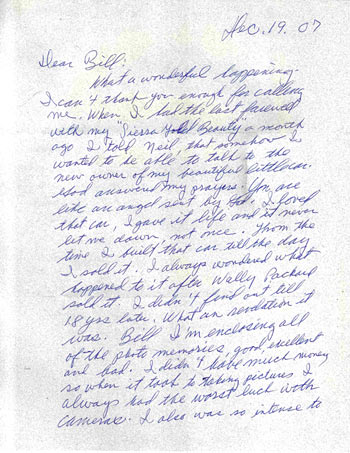 Dec. 19. 07
Dear Bill:
What a wonderful happening.
I can't thank you enough for calling
me. When I had the last farewell
with my "Sierra Gold Beauty" a month
ago I told Neil, that somehow I
wanted to be able to talk to the
new owner of my beautiful little car.
God answered my prayers. You are
like an angel sent by God, I loved
that car, I gave it life and it never
let me down, not once. From the
time I built that car till the day
I sold it. I always wondered what
happened to it after Wally Packard
sold it. I didn't find out till
18 yrs later. What an rendation it
was. Bill I'm enclosing all
of the photo memories, good, excellent
and bad. I didn't have much money
so when it took to taking pictures I
always had the worst luck with
cameras. I also was so intense to